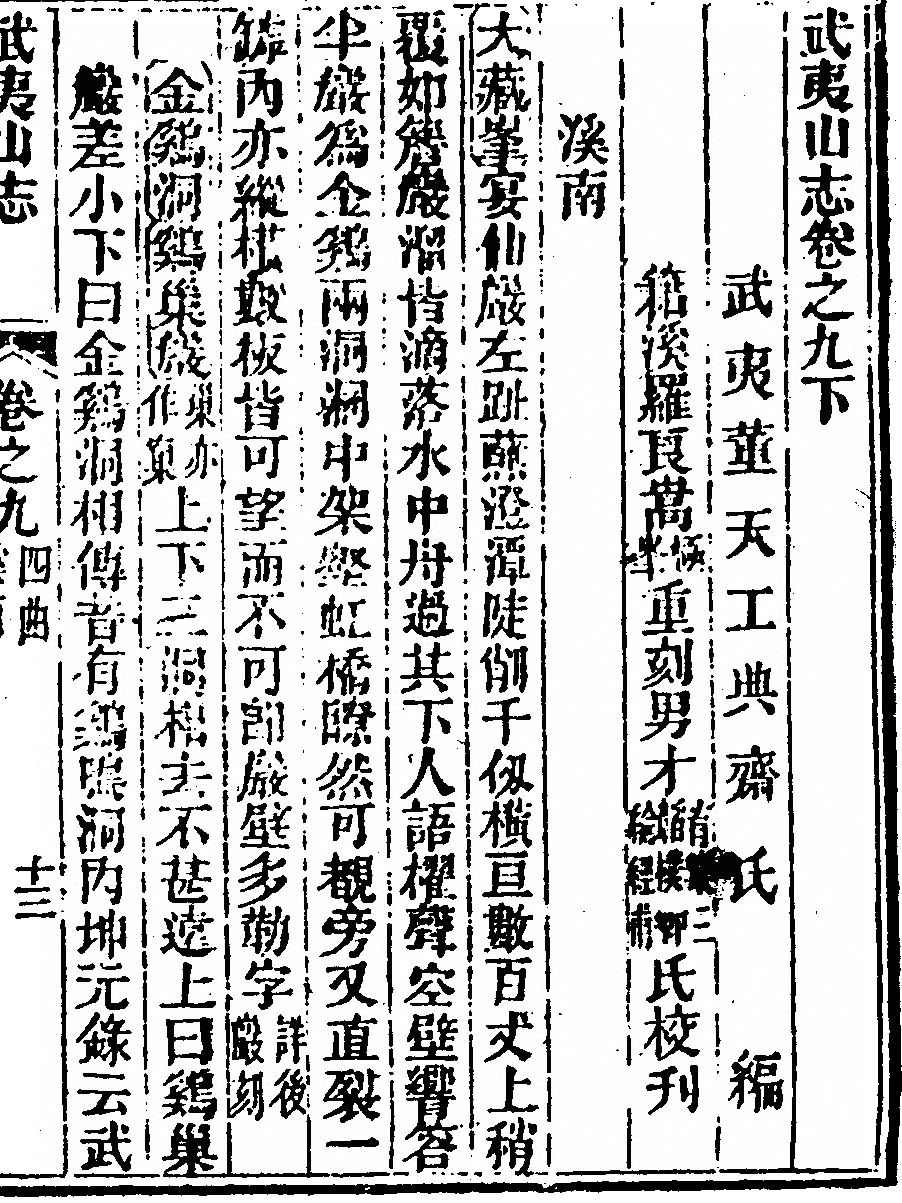 武夷山志卷之九下
武夷董天工典齋氏編
稻溪羅良嵩峰極重刻男才綸經甫蹈樸卿有集三氏校刊
溪南
大藏峯宴仙巖左趾蘸澄潭陡削千仭橫亘數百丈上稍
覆如簷巖溜皆滴落水中舟過其下人語櫂聲空壁響答
半巖爲金鷄兩洞洞中架壑虹橋瞭然可覩旁又直裂一
罅內亦縱橫數板皆可望而不可卽巖壁多勒字詳後巖刻
金鷄洞鷄巢巖巢亦作窠上下二洞相去不甚遠上曰鷄巢
巖差小下曰金鷄洞相傳昔有鷄鳴洞內坤元錄云武
武夷山志 卷之九 四曲 十三